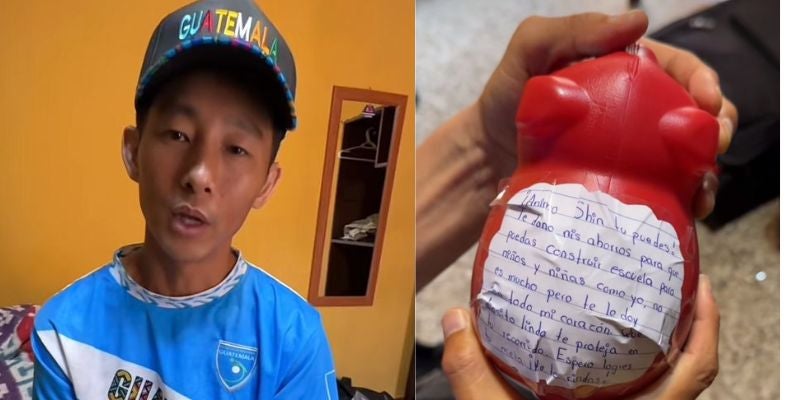 GUATEMALA
GUATEMALA
GUA
¡Animo Shin tu puedes!
Te dono mis ahorros para que
puedas construir escuela para
niños y niñas como yo, no
es mucho pero te lo doy
todo mi corazón.
linda te proteja en
tu recorrido. Espero logres
meta
rindas!